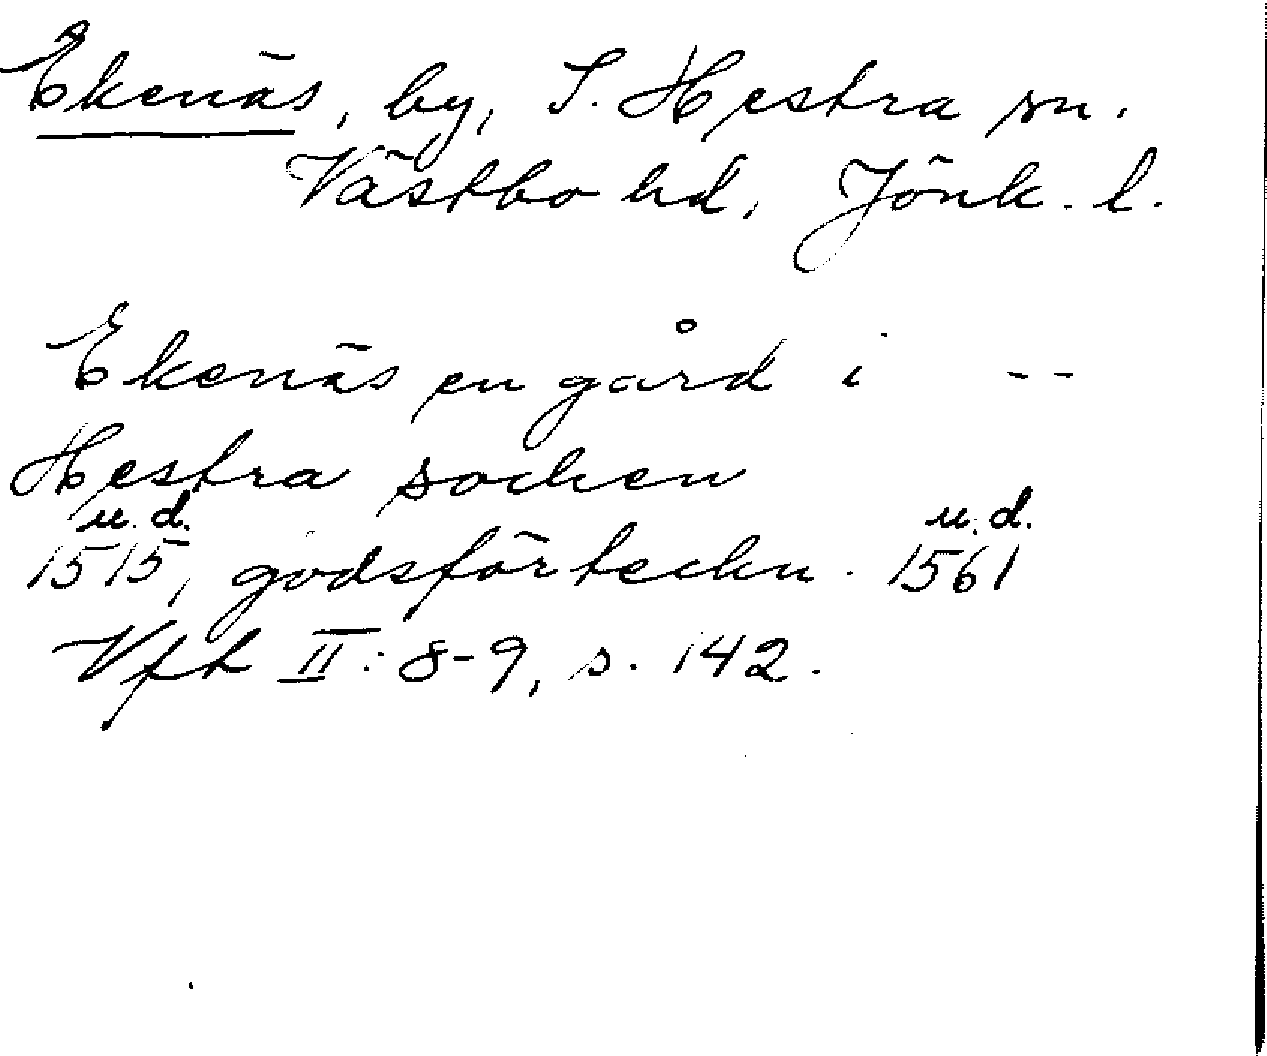 Ekenäs, by, S. Hestra sn.
Västbo hd, Jönk. l.
Ekenäs en gård i --
Hestra socken
u.d. u.d.
1515, godsförteckn. 1561
Vfh II: 8-9, s. 142.